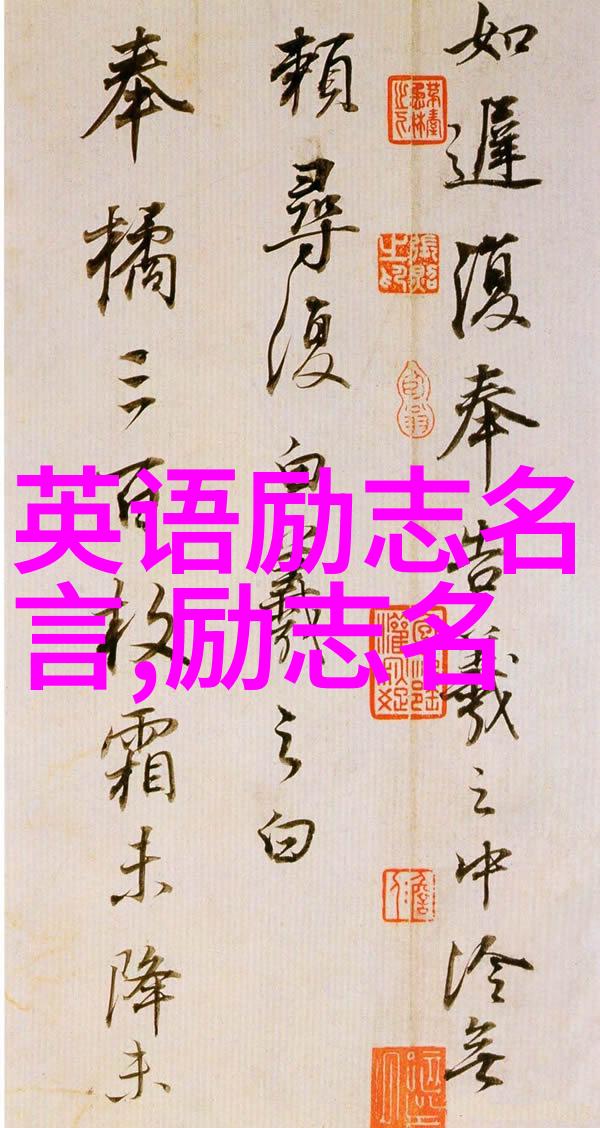 如遲復奉告羲之中冷無
賴尋復白羲之白
奉橘三百枚霜未降未
英语励志名
言,励志名